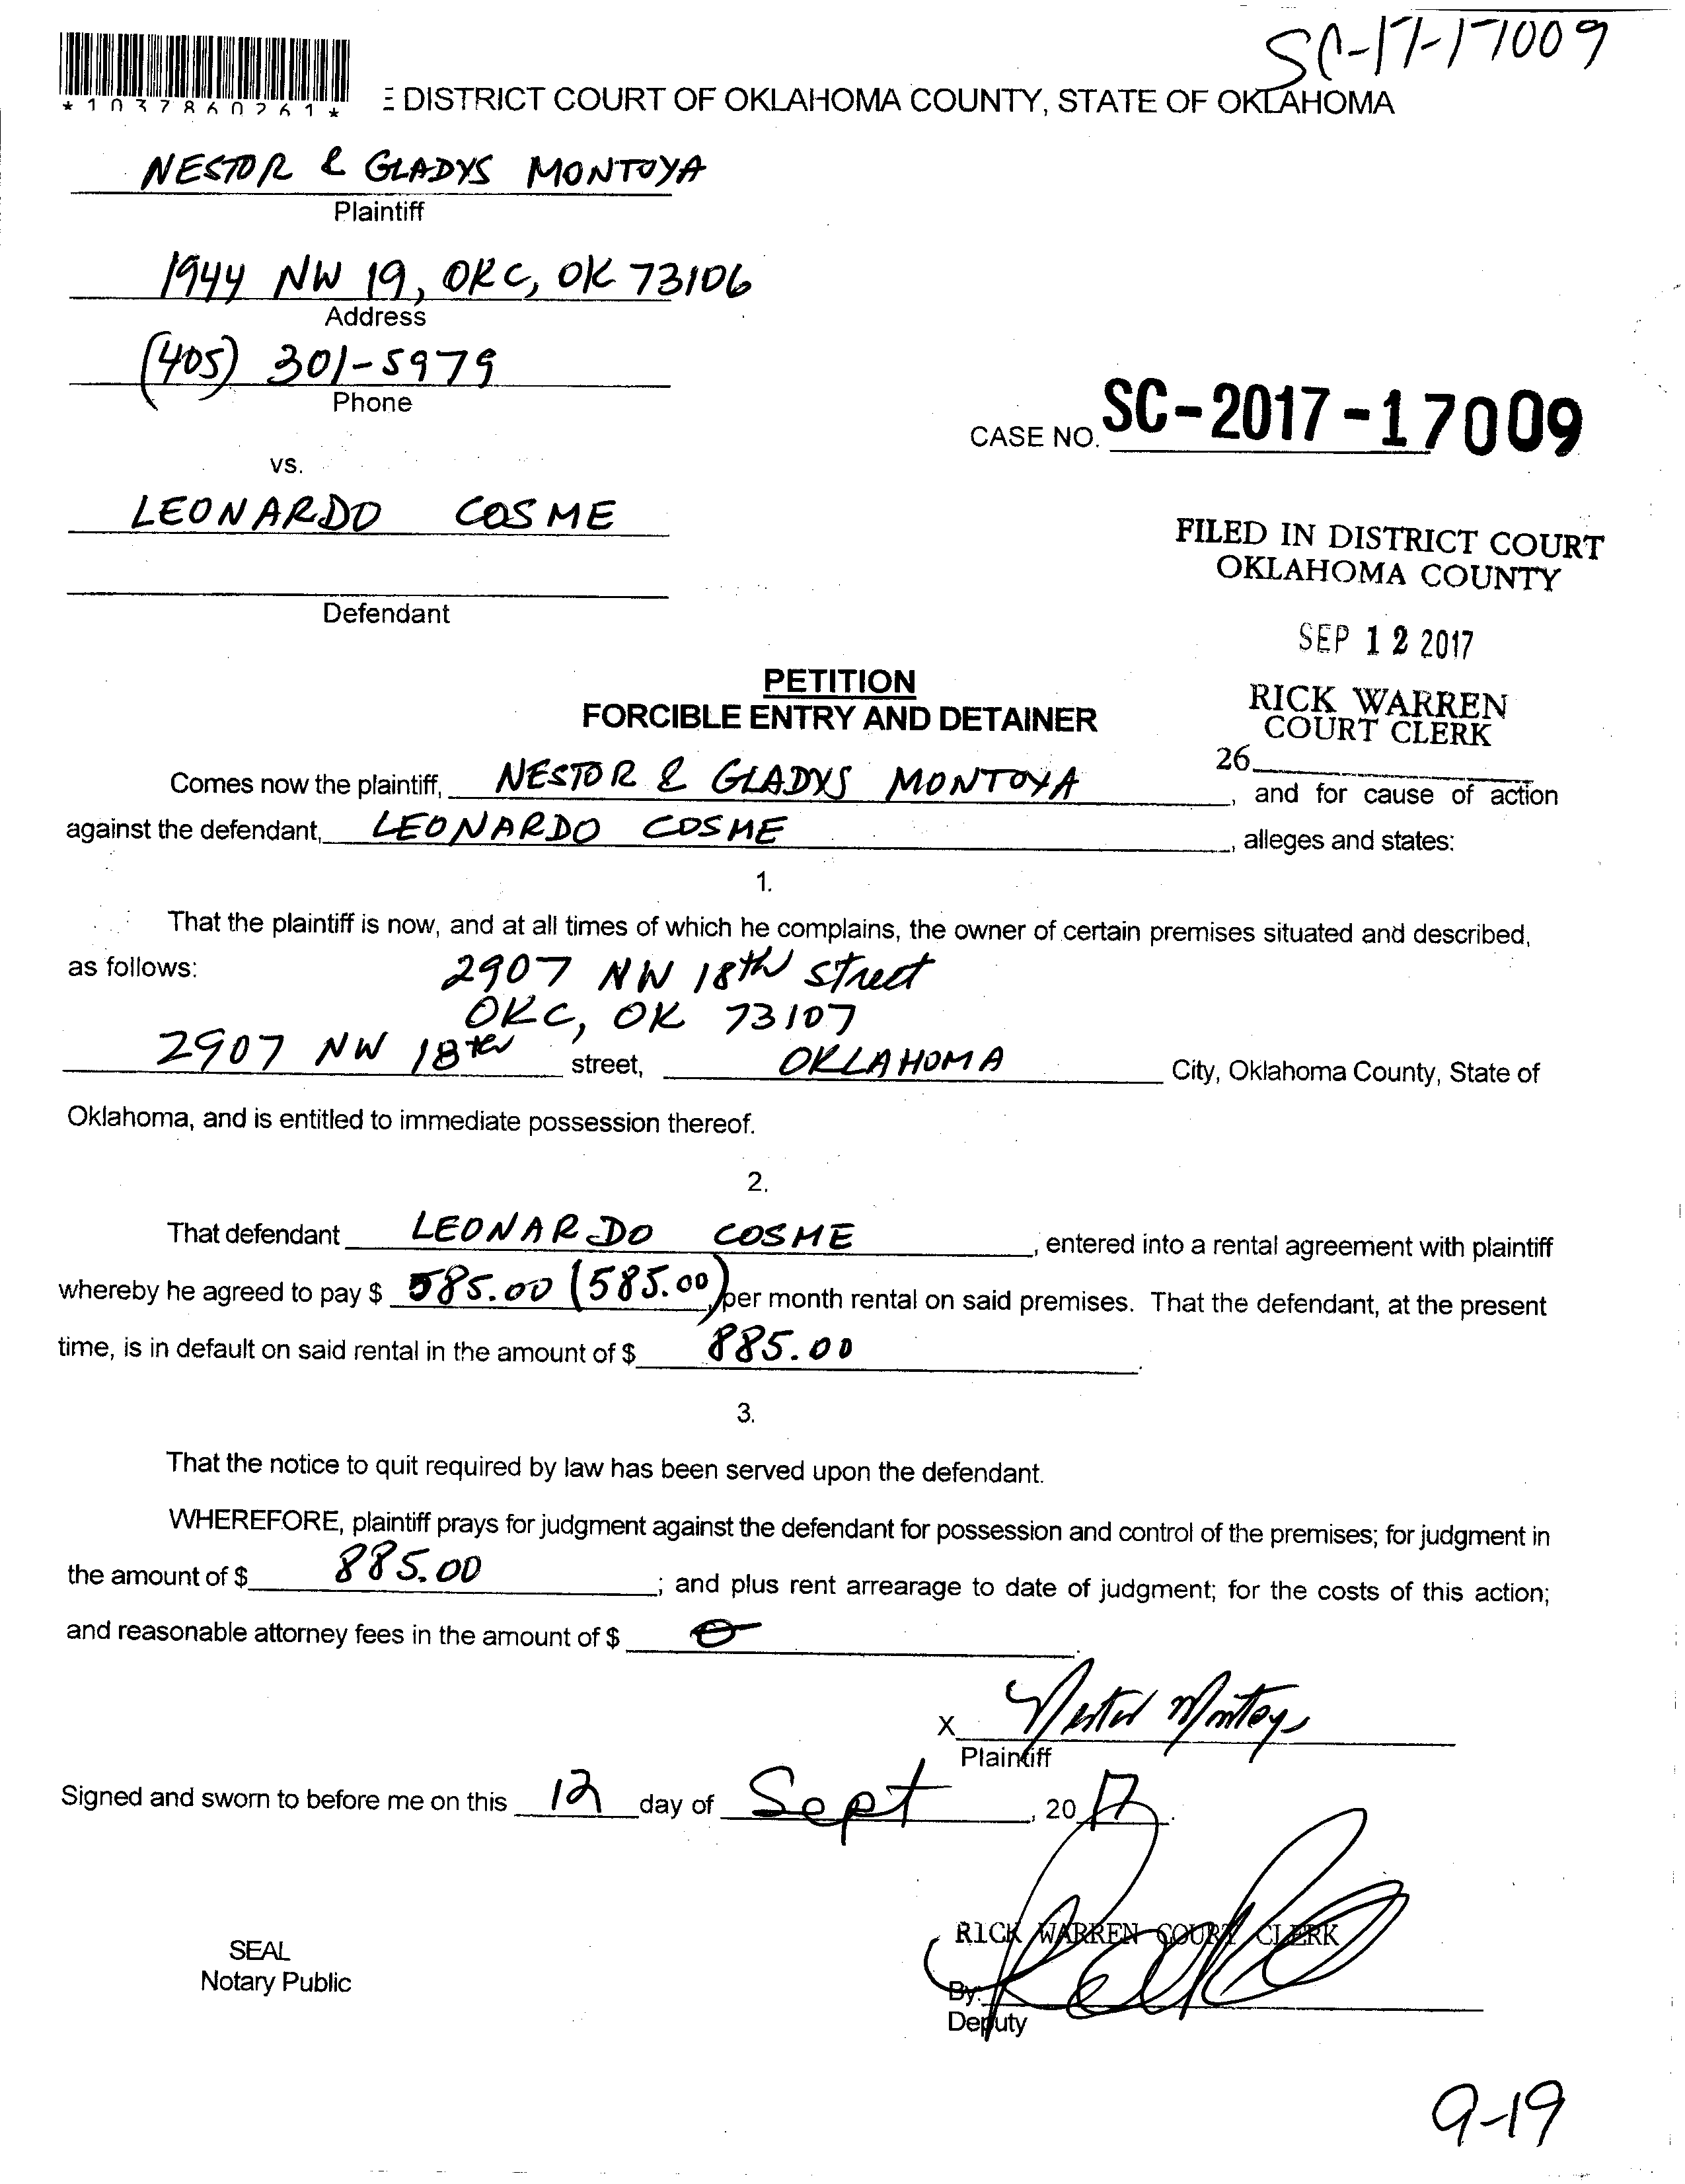 SC-17-17009
*1037860261*
E DISTRICT COURT OF OKLAHOMA COUNTY, STATE OF OKLAHOMA
NESTOR & GLADYS MONTOYA
Plaintiff
1944 NW 19, OKC, OK 73106
Address
(405) 301-5979
Phone
CASE NO. SC-2017-17009
vs.
LEONARDO COSME
Defendant
FILED IN DISTRICT COURT
OKLAHOMA COUNTY
SEP 12 2017
RICK WARREN
COURT CLERK
26
PETITION
FORCIBLE ENTRY AND DETAINER
Comes now the plaintiff, NESTOR & GLADYS MONTOYA, and for cause of action
against the defendant, LEONARDO COSME, alleges and states:
1.
That the plaintiff is now, and at all times of which he complains, the owner of certain premises situated and described,
as follows: 2907 NW 18th street
OKC, OK 73107
2907 NW 18th street, OKLAHOMA City, Oklahoma County, State of
Oklahoma, and is entitled to immediate possession thereof.
2.
That defendant LEONARDO COSME, entered into a rental agreement with plaintiff
whereby he agreed to pay $ 585.00 (585.00), per month rental on said premises. That the defendant, at the present
time, is in default on said rental in the amount of $ 885.00.
3.
That the notice to quit required by law has been served upon the defendant.
WHEREFORE, plaintiff prays for judgment against the defendant for possession and control of the premises; for judgment in
the amount of $ 885.00; and plus rent arrearage to date of judgment; for the costs of this action;
and reasonable attorney fees in the amount of $ 0.
X Nestor Montoya
Plaintiff
Signed and sworn to before me on this 12 day of Sept, 2017.
RICK WARREN COURT CLERK
SEAL
Notary Public
By:
Deputy
9-19